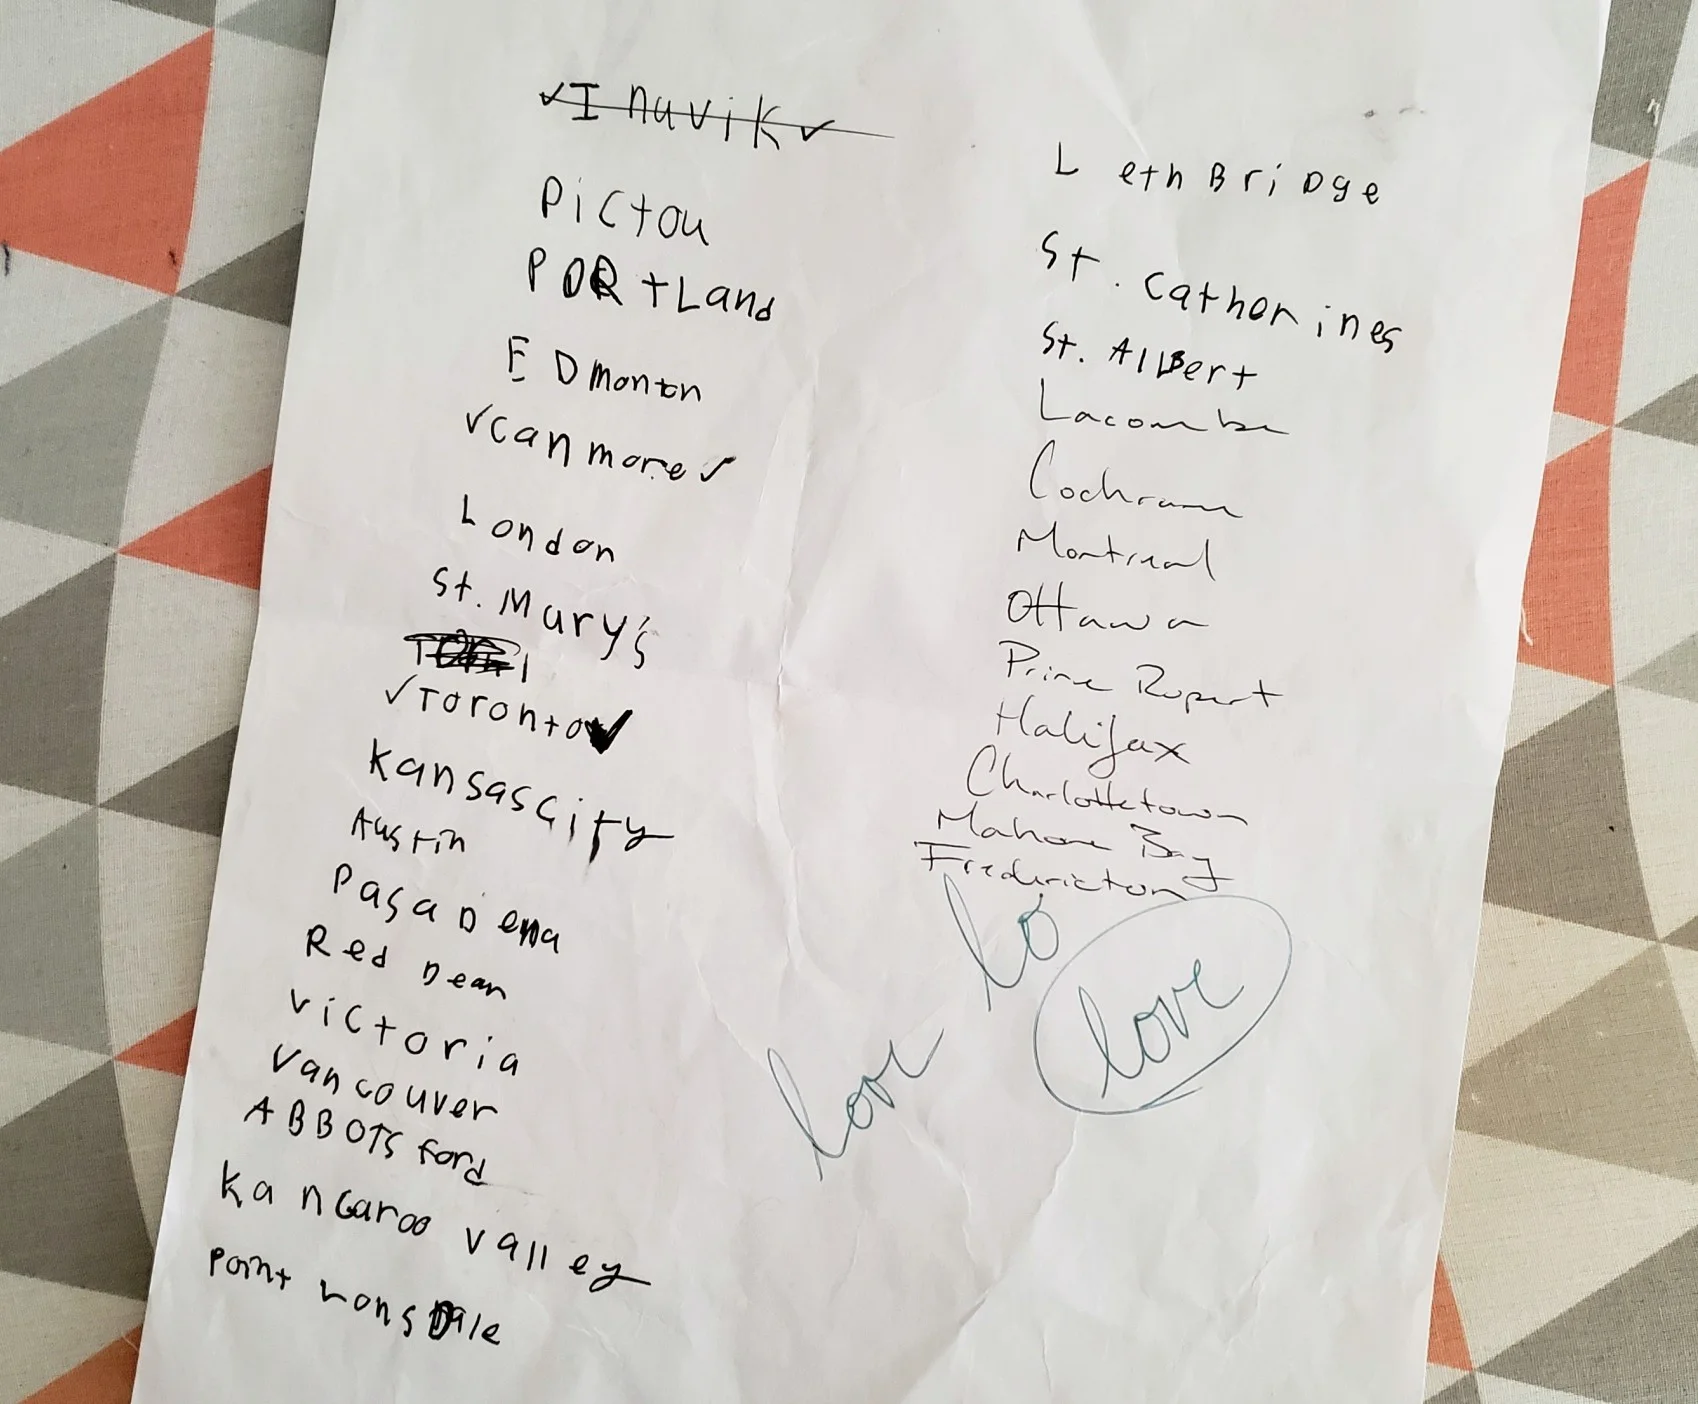 ✓Inuvik✓
Pictou
PORtLand
EDmonton
✓canmore✓
London
St. Mary's
✓Toronto✓
Kansas city
Austin
PasaDena
Red Dear
victoria
Vancouver
ABBOTSford
KanGaroo valley
Point LonsDale
LethBriDge
St. Catherines
St. AlBert
Lacombe
Cochrane
Montreal
Ottawa
Prince Rupert
Halifax
Charlottetown
Mahone Bay
Fredericton
lo
love
love